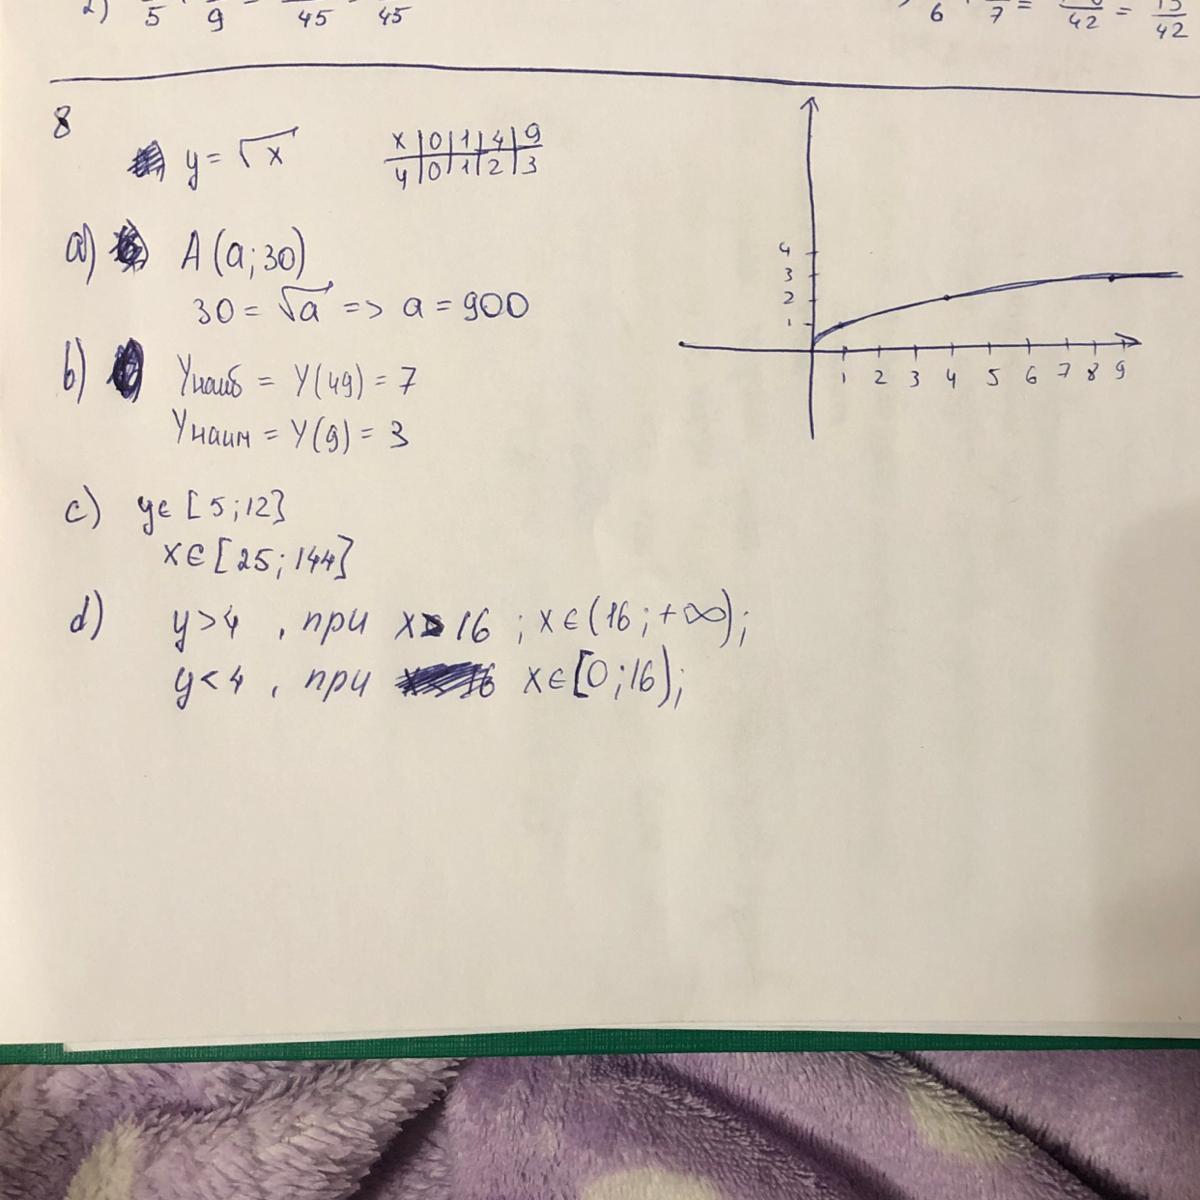 2) 5 9 = 45 45
6 7 = 42 = 15/42
8
y = √x
x | 0 | 1 | 4 | 9
y | 0 | 1 | 2 | 3
a) A (a; 30)
30 = √a => a = 900
b) Yнаиб = Y(49) = 7
Yнаим = Y(9) = 3
c) y∈ [5;12]
x∈ [25; 144]
d) y>4 , при x>16 ; x∈(16; +∞);
y<4 , при x∈[0;16);
4
3
2
1
1 2 3 4 5 6 7 8 9